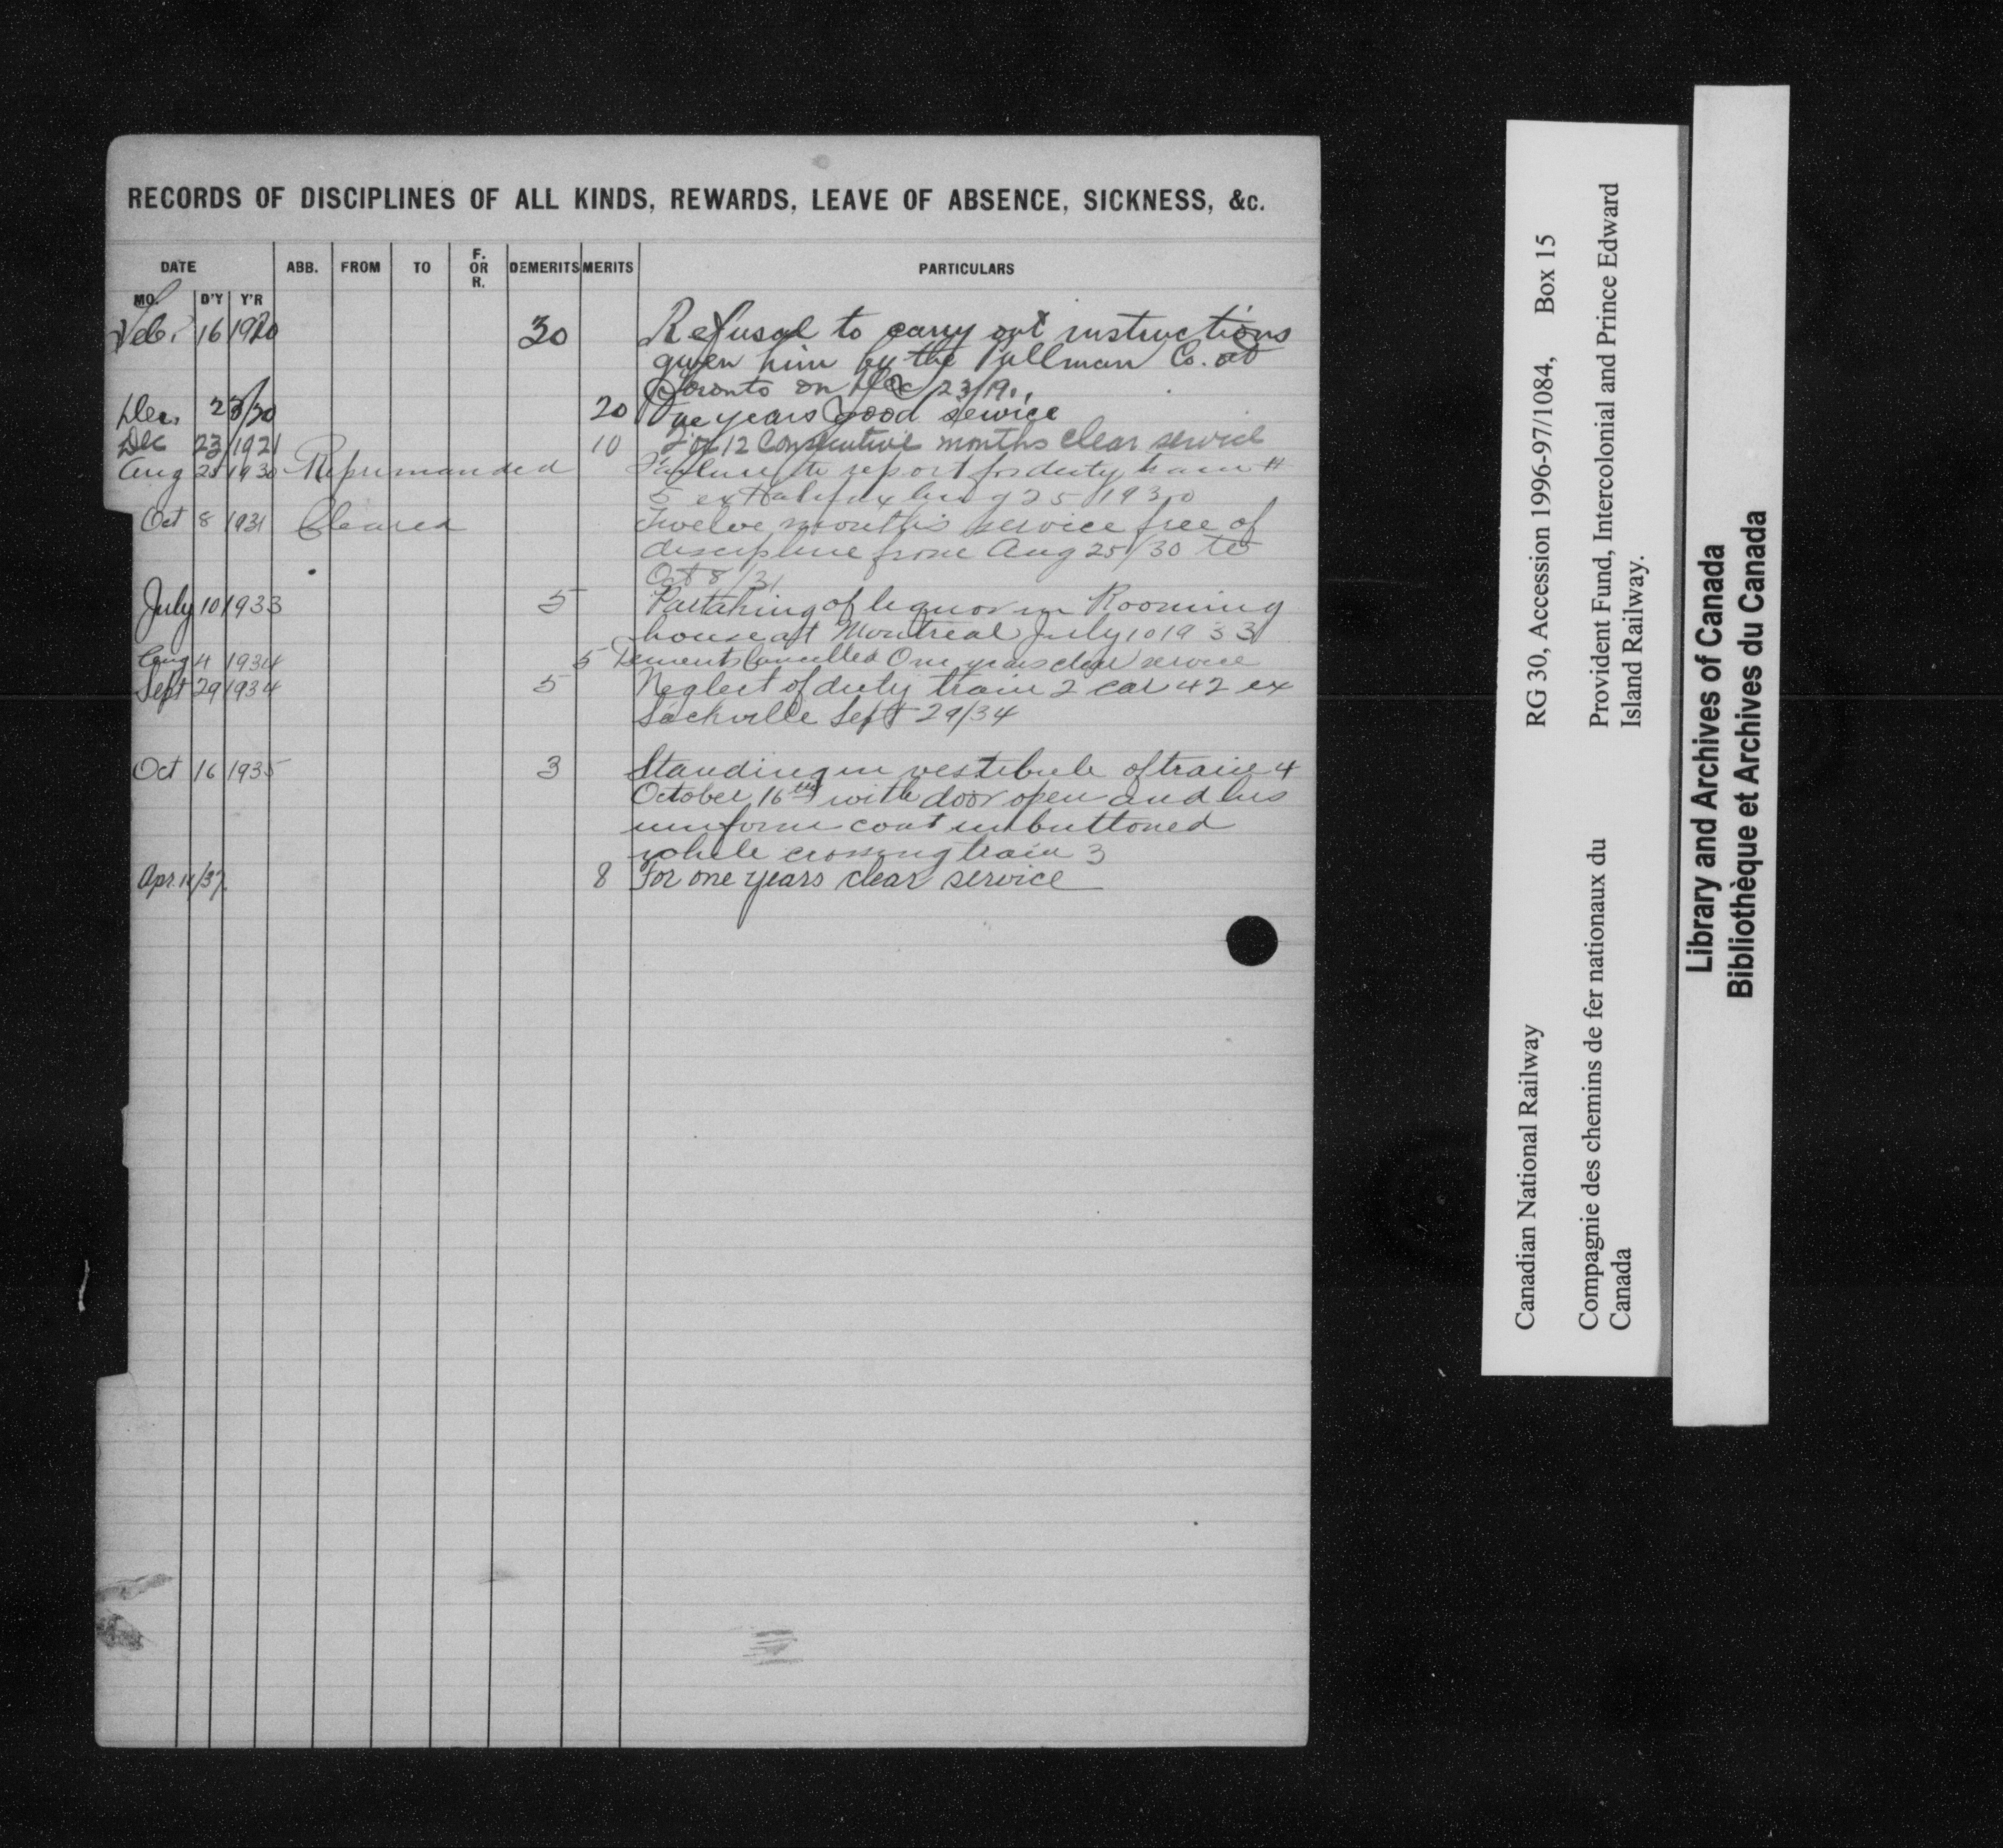 RECORDS OF DISCIPLINES OF ALL KINDS, REWARDS, LEAVE OF ABSENCE, SICKNESS, &c.
DATE ABB. FROM TO F. OR R. DEMERITS MERITS PARTICULARS
MO. D'Y Y'R
Feb. 16 1920 30 Refusal to carry out instructions
given him by the Pullman Co. at
Toronto on Dec 23/19.
Dec. 23/20 20 One years good service
Dec 23/1921 10 For 12 Consecutive months clear service
Aug 25 1930 Reprimanded Failure to report for duty train #
5 ex Halifax Aug 25 1930
Oct 8 1931 Cleared Twelve months service free of
discipline from Aug 25/30 to
Oct 8/31
July 10 1933 5 Partaking of liquor in Rooming
house at Montreal July 10 1933
Aug 4 1934 5 Demerits Cancelled One years clear service
Sept 29 1934 5 Neglect of duty train 2 car 42 ex
Sackville Sept 29/34
Oct 16 1935 3 Standing in vestibule of train 4
October 16th with door open and his
uniform coat unbuttoned
while crossing train 3
Apr. /37. 8 For one years clear service
Canadian National Railway RG 30, Accession 1996-97/1084, Box 15
Compagnie des chemins de fer nationaux du Canada Provident Fund, Intercolonial and Prince Edward Island Railway.
Library and Archives of Canada
Bibliothèque et Archives du Canada